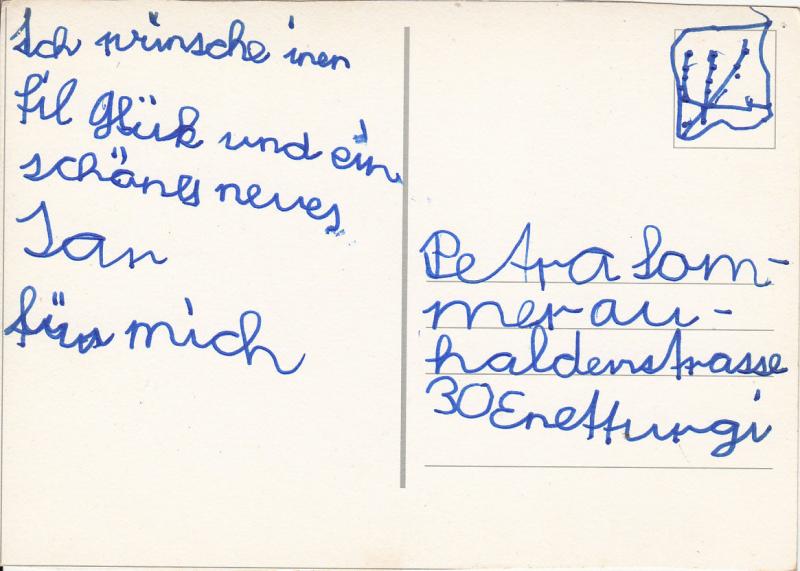 Ich wünsche inen
fil Glük und ein
schönes neues
Jar
für mich
Petra Som-
merau-
haldenstrasse
30 Enetturgi